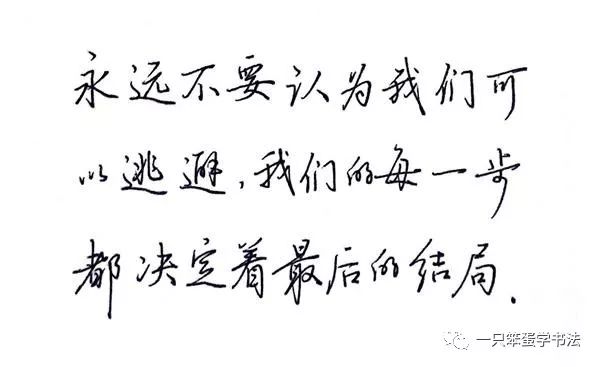 永远不要认为我们可
以逃避,我们的每一步
都决定着最后的结局.
一只笨蛋学书法